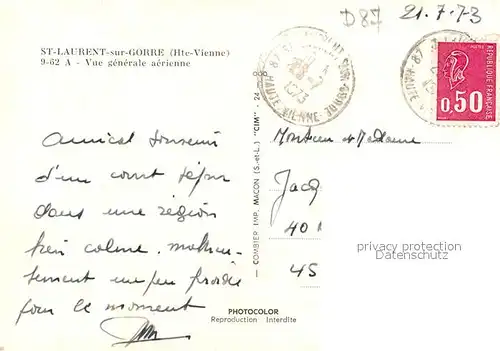 D87 21.7.73
ST-LAURENT-sur-GORRE (Hte-Vienne)
9-62 A - Vue générale aérienne
RÉPUBLIQUE FRANÇAISE
0,50
HAUTE-VIENNE
1973
Amical souvenir
d'un court séjour
dans une région
très calme, malheureu-
sement un peu froide
pour le moment
Monsieur et Madame
Jacq
40
45
COMBIER IMP. MACON (S.-et-L.) "CIM"
privacy protection
Datenschutz
PHOTOCOLOR
Reproduction Interdite